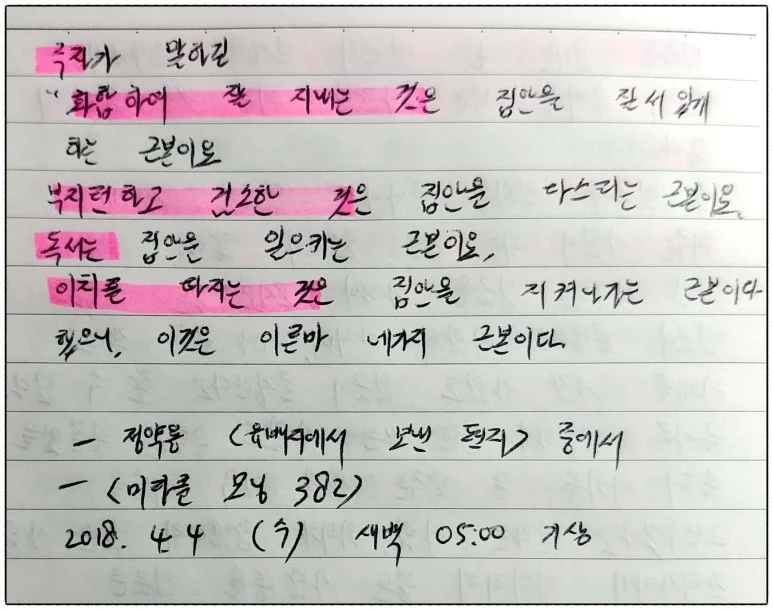 주자가 말하길
"화합하여 잘 지내는 것은 집안을 질서 있게
하는 근본이요
부지런하고 검소한 것은 집안을 다스리는 근본이요,
독서는 집안을 일으키는 근본이요,
이치를 따지는 것은 집안을 지켜나가는 근본이다
했으니, 이것은 이른바 네가지 근본이다.
- 정약용 <유배지에서 보낸 편지> 중에서
- <미라클 모닝 382>
2018. 4. 4 (수) 새벽 05:00 기상